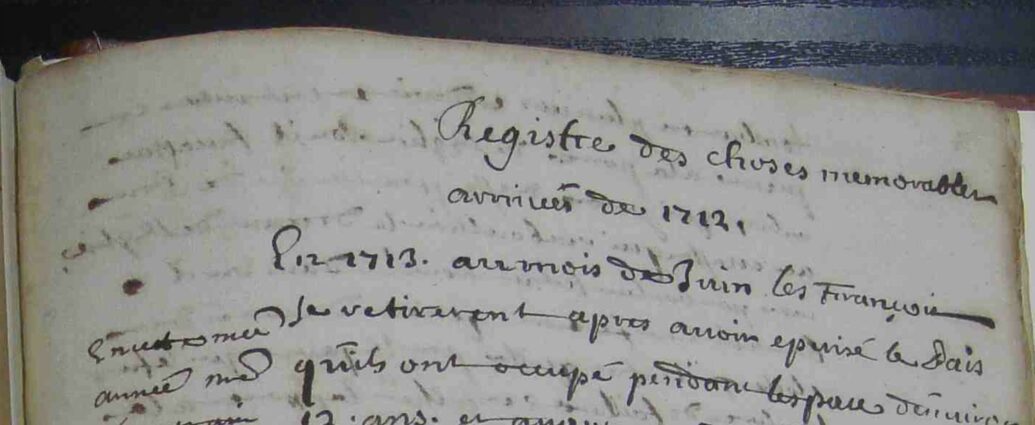 Registre des choses memorables
arrivées de 1712.
En 1713. au mois de Juin les François
se retirerent apres avoir epuisé le Païs
qu'ils ont occupé pendant lespace d'environ
12. ans. et
En cette
année